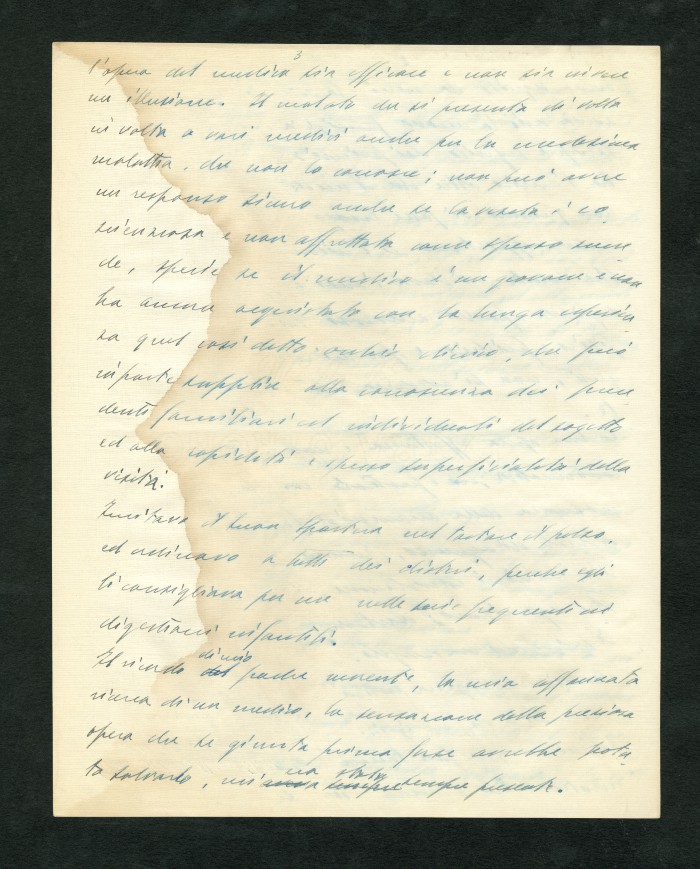 3
l'opera del medico sia efficace e non sia invece
un illusione. Il malato che si presenta di volta
in volta a vari medici anche per la medesima
malattia, che non lo conosce; non può avere
un responso sicuro anche se la visita è co
scienziosa e non affrettata come spesso succe
de, specie se il medico è un giovane e non
ha ancora acquistato con la lunga esperien
za quel così detto occhio clinico, che può
in parte supplire alla conoscenza dei prece
denti familiari ed individuali del soggetto
ed alla rapidità e spesso superficialità della
visita.
il buon nel tastare il polso,
ed ordinavo a tutti dei clisteri, perche egli
li consigliava per me nelle mie frequenti in
digestioni infantili.
Il ricordo del di mio padre morente, la mia affannata
ricerca di un medico, la sensazione della preziosa
opera che se giunta prima forse avrebbe potu
to salvarlo, mi era stata sempre sempre presente.